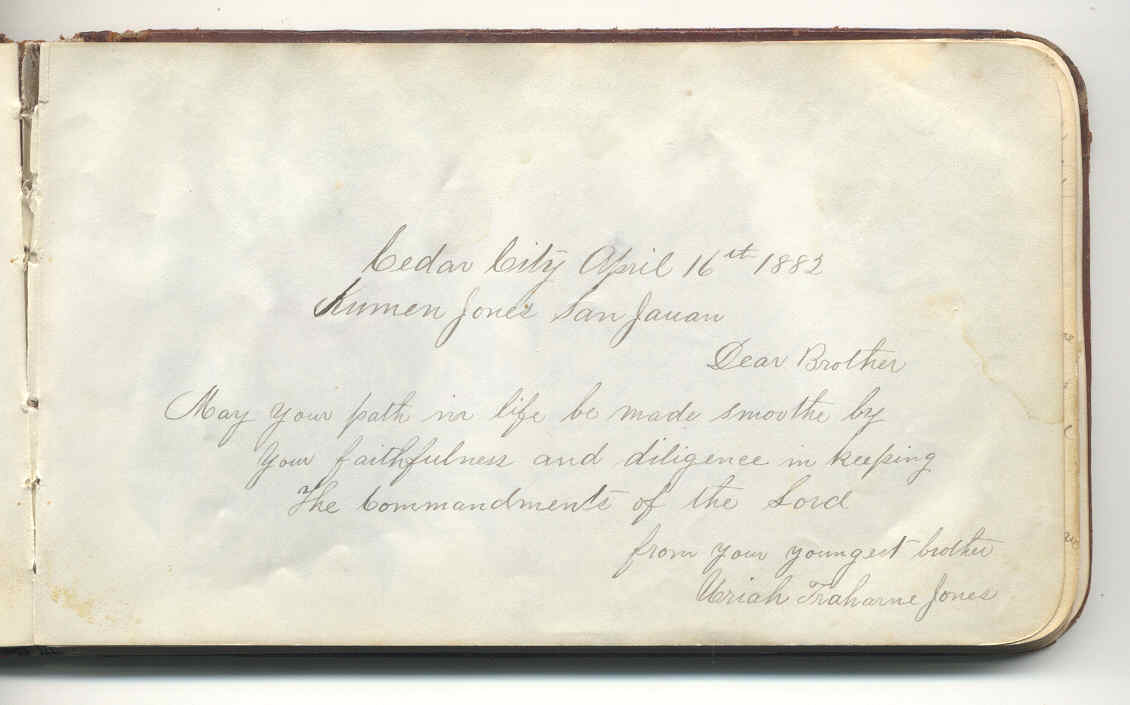 Cedar City April 16th 1882
Kumen Jones San Jauan
Dear Brother
May your path in life be made smoothe by
your faithfulness and diligence in keeping
The Commandments of the Lord
from your youngest brother
Uriah Traharne Jones